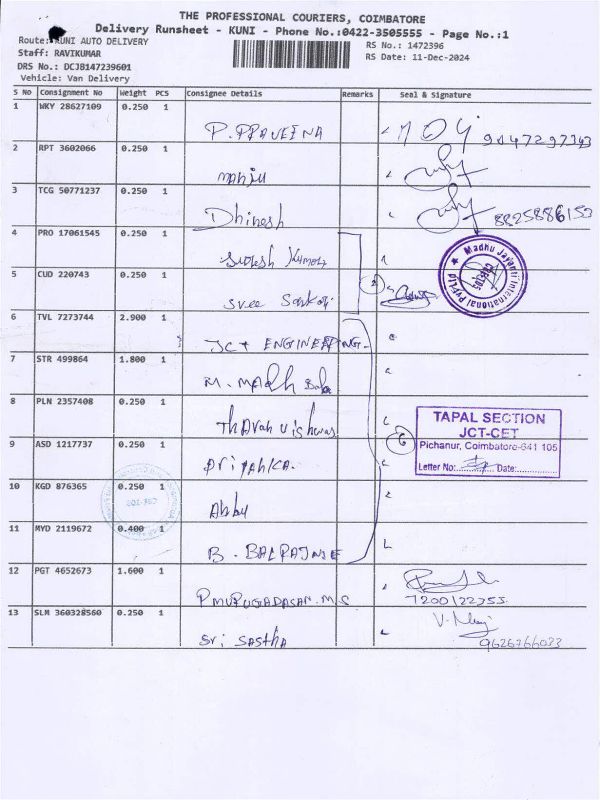 THE PROFESSIONAL COURIERS, COIMBATORE
Delivery Runsheet - KUNI - Phone No.:0422-3505555 - Page No.:1
Route: KUNI AUTO DELIVERY
Staff: RAVIKUMAR
DRS No.: DCJB147239601
Vehicle: Van Delivery
RS No.: 1472396
RS Date: 11-Dec-2024
S No Consignment No Weight PCS Consignee Details Remarks Seal & Signature
1 WKY 28627109 0.250 1 P. PRAVEENA
2 RPT 3602066 0.250 1 Manju
3 TCG 50771237 0.250 1 Dhinesh 8825886153
4 PRO 17061545 0.250 1 Suresh Kumar
5 CUD 220743 0.250 1 Sree Sankar 2
Madhu Jayanti International Pvt Ltd
6 TVL 7273744 2.900 1 JCT ENGINEERING
7 STR 499864 1.800 1 M. Madh Babu
8 PLN 2357408 0.250 1 Tharan Vishwas
TAPAL SECTION
JCT-CET
Pichanur, Coimbatore-641 105
Letter No:............ Date:............
9 ASD 1217737 0.250 1 Priyanka 6
10 KGD 876365 0.250 1 Abbu
11 MYD 2119672 0.400 1
12 PGT 4652673 1.600 1 P MURUGADASAN. M.S 7200122355
13 SLM 360328560 0.250 1 Sri Sastha 9626766033